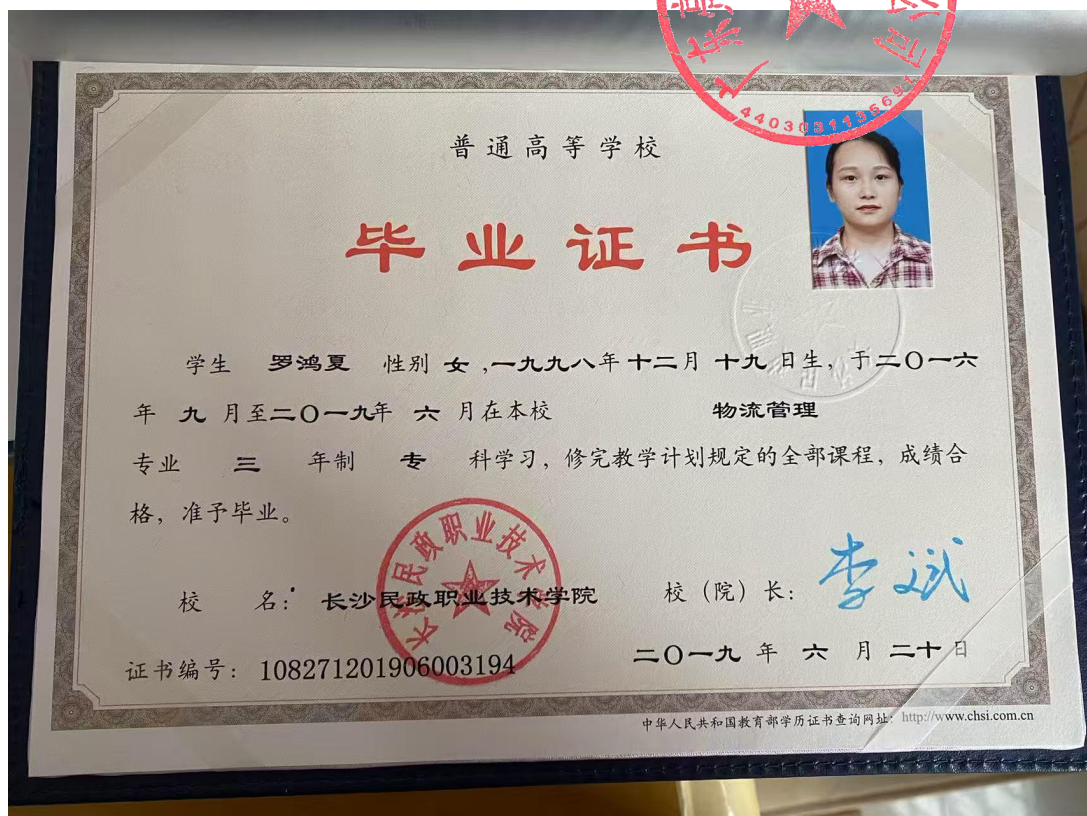 4403031135691
普通高等学校
毕业证书
学生 罗鸿夏 性别 女 ,一九九八年十二月 十九 日生，于二〇一六
年 九 月至二〇一九年 六 月在本校 物流管理
专业 三 年制 专 科学习，修完教学计划规定的全部课程，成绩合
格，准予毕业。
长沙民政职业技术学院
校 名： 长沙民政职业技术学院 校（院）长： 李斌
证书编号： 108271201906003194 二〇一九 年 六 月 二十 日
中华人民共和国教育部学历证书查询网址： http://www.chsi.com.cn